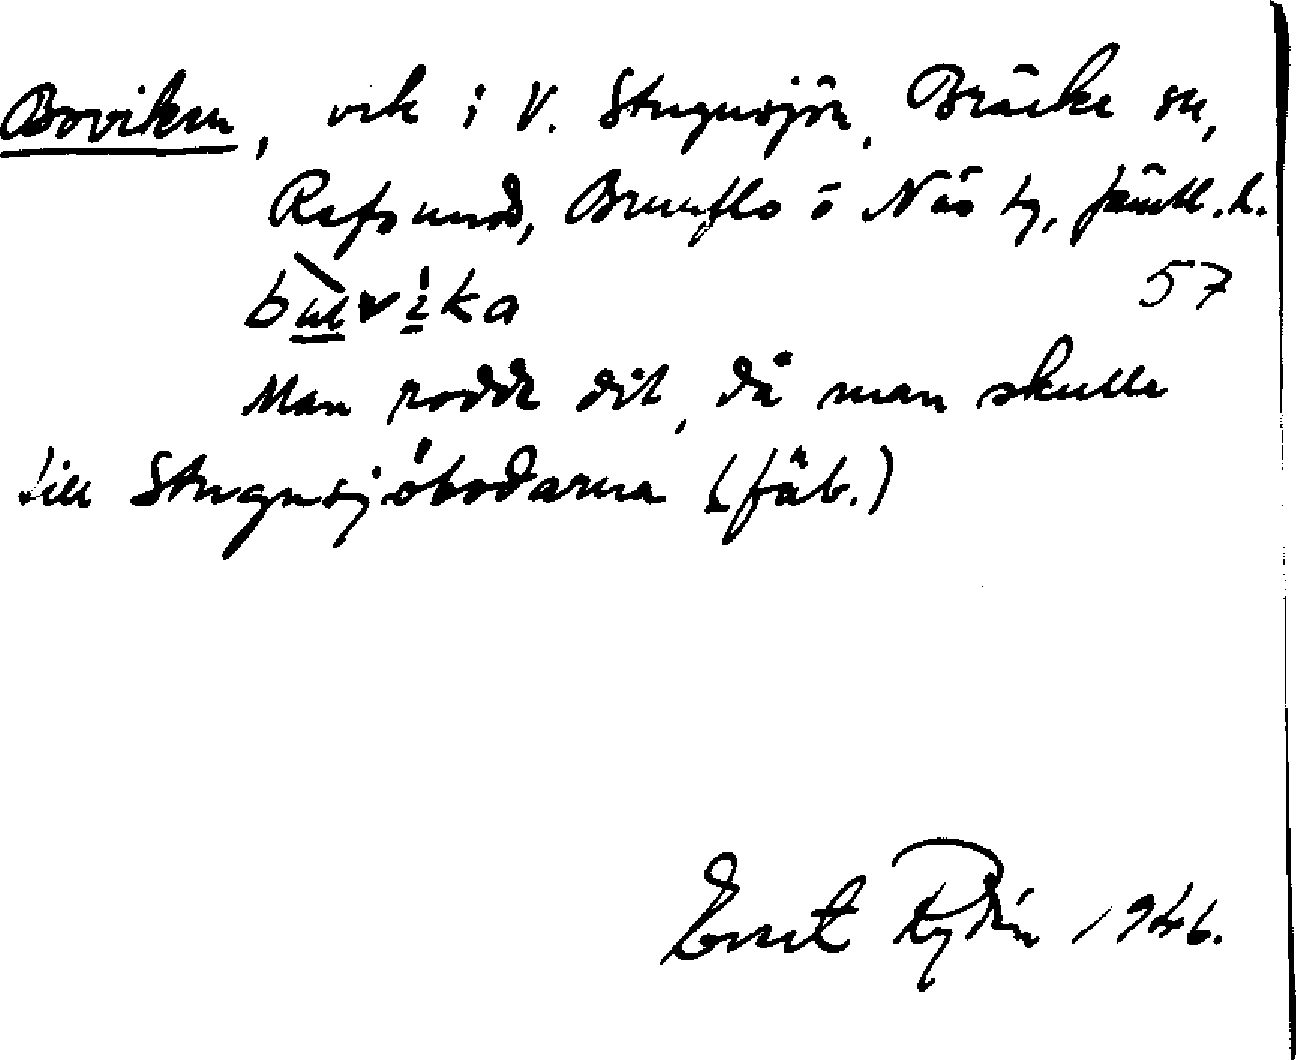 Boviken, vik i V. Stugusjön, Bräcke sn,
Refsund, Brunflo o Näs tg, Jämtl. l.
57
Man rodde dit, då man skulle
till Stugusjöbodarna (fäb.)
Ernst Rydén 1946.